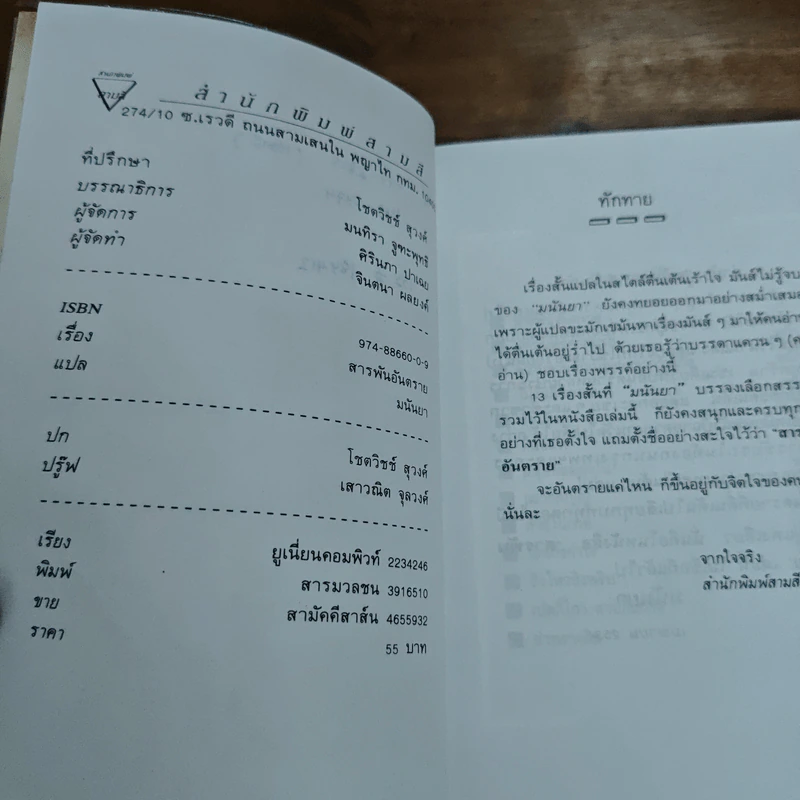 สำนักพิมพ์สามสี
274/10 ซ.เรวดี ถนนสามเสนใน พญาไท กทม.
ที่ปรึกษา โชตวิชช์ สุวงศ์
บรรณาธิการ มนทิรา จูฑะพุทธิ
ผู้จัดการ ศิรินภา ปาเฉย
ผู้จัดทำ จินตนา ผลยงค์
ISBN 974-88660-0-9
เรื่อง สารพันอันตราย
แปล มนันยา
ปก โชตวิชช์ สุวงศ์
ปรู๊ฟ เสาวณิต จุลวงศ์
เรียง ยูเนี่ยนคอมพิวท์ 2234246
พิมพ์ สารมวลชน 3916510
ขาย สามัคคีสาส์น 4655932
ราคา 55 บาท
ทักทาย
เรื่องสั้นแปลในสไตล์ตื่นเต้นเร้าใจ มันส์ไม่รู้จบ
ของ "มนันยา" ยังคงทยอยออกมาอย่างสม่ำเสมอ
เพราะผู้แปลขะมักเขม้นหาเรื่องมันส์ ๆ มาให้คนอ่าน
ได้ตื่นเต้นอยู่ร่ำไป ด้วยเธอรู้ว่าบรรดาแควน ๆ (ค
อ่าน) ชอบเรื่องพรรค์อย่างนี้
13 เรื่องสั้นที่ "มนันยา" บรรจงเลือกสรร
รวมไว้ในหนังสือเล่มนี้ ก็ยังคงสนุกและครบทุก
อย่างที่เธอตั้งใจ แถมตั้งชื่ออย่างสะใจไว้ว่า "สาร
อันตราย"
จะอันตรายแค่ไหน ก็ขึ้นอยู่กับจิตใจของคน
นั่นละ
จากใจจริง
สำนักพิมพ์สามสี